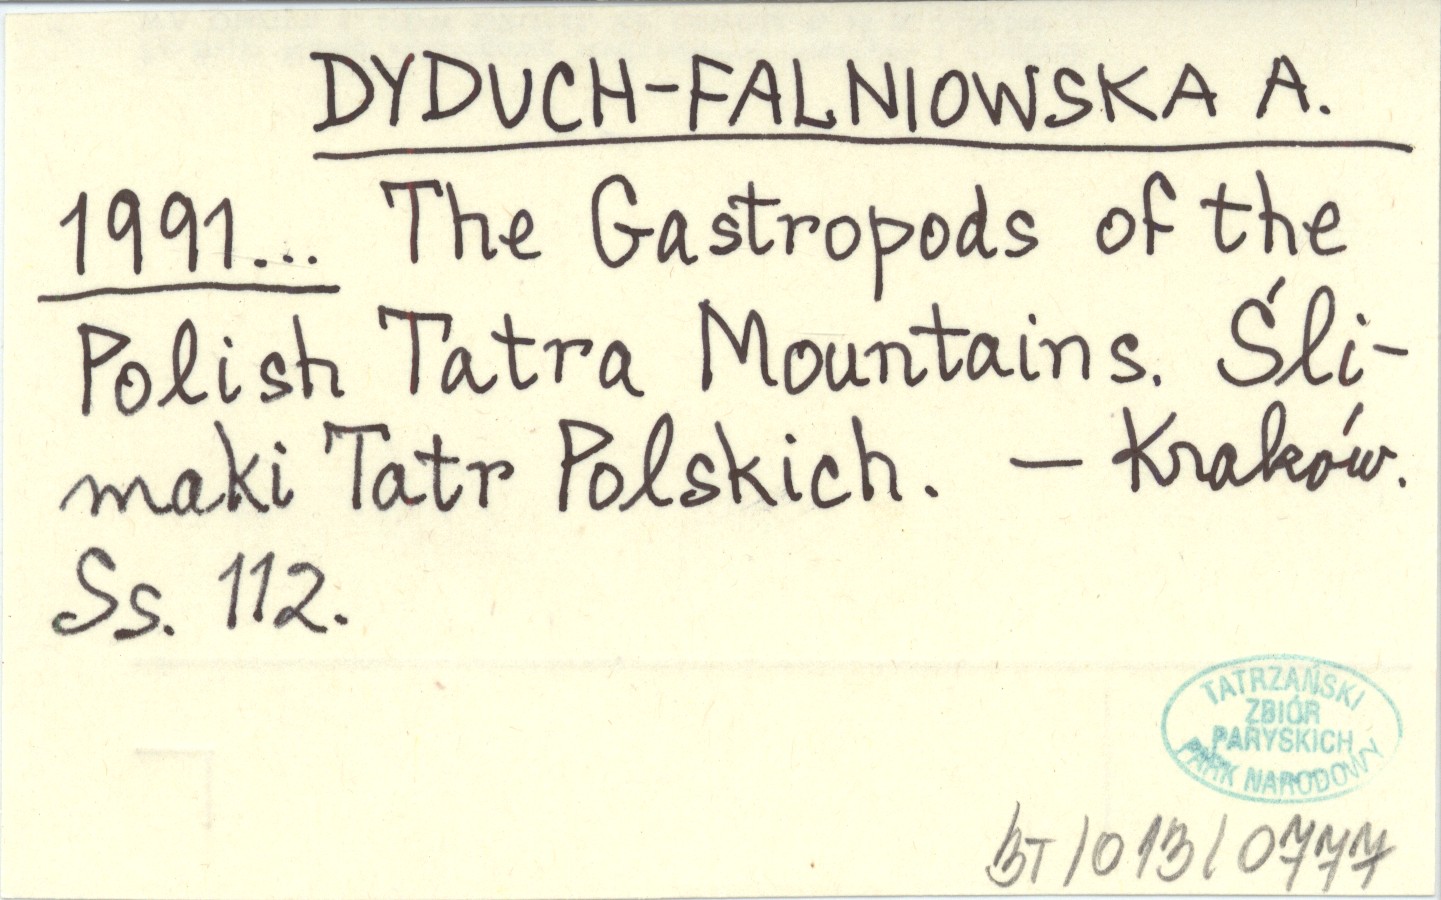 DYDUCH-FALNIOWSKA A.
1991... The Gastropods of the
Polish Tatra Mountains. Śli-
maki Tatr Polskich. — Kraków.
Ss. 112.
TATRZAŃSKI
ZBIÓR
PARYSKICH
PARK NARODOWY
BT/013/0777